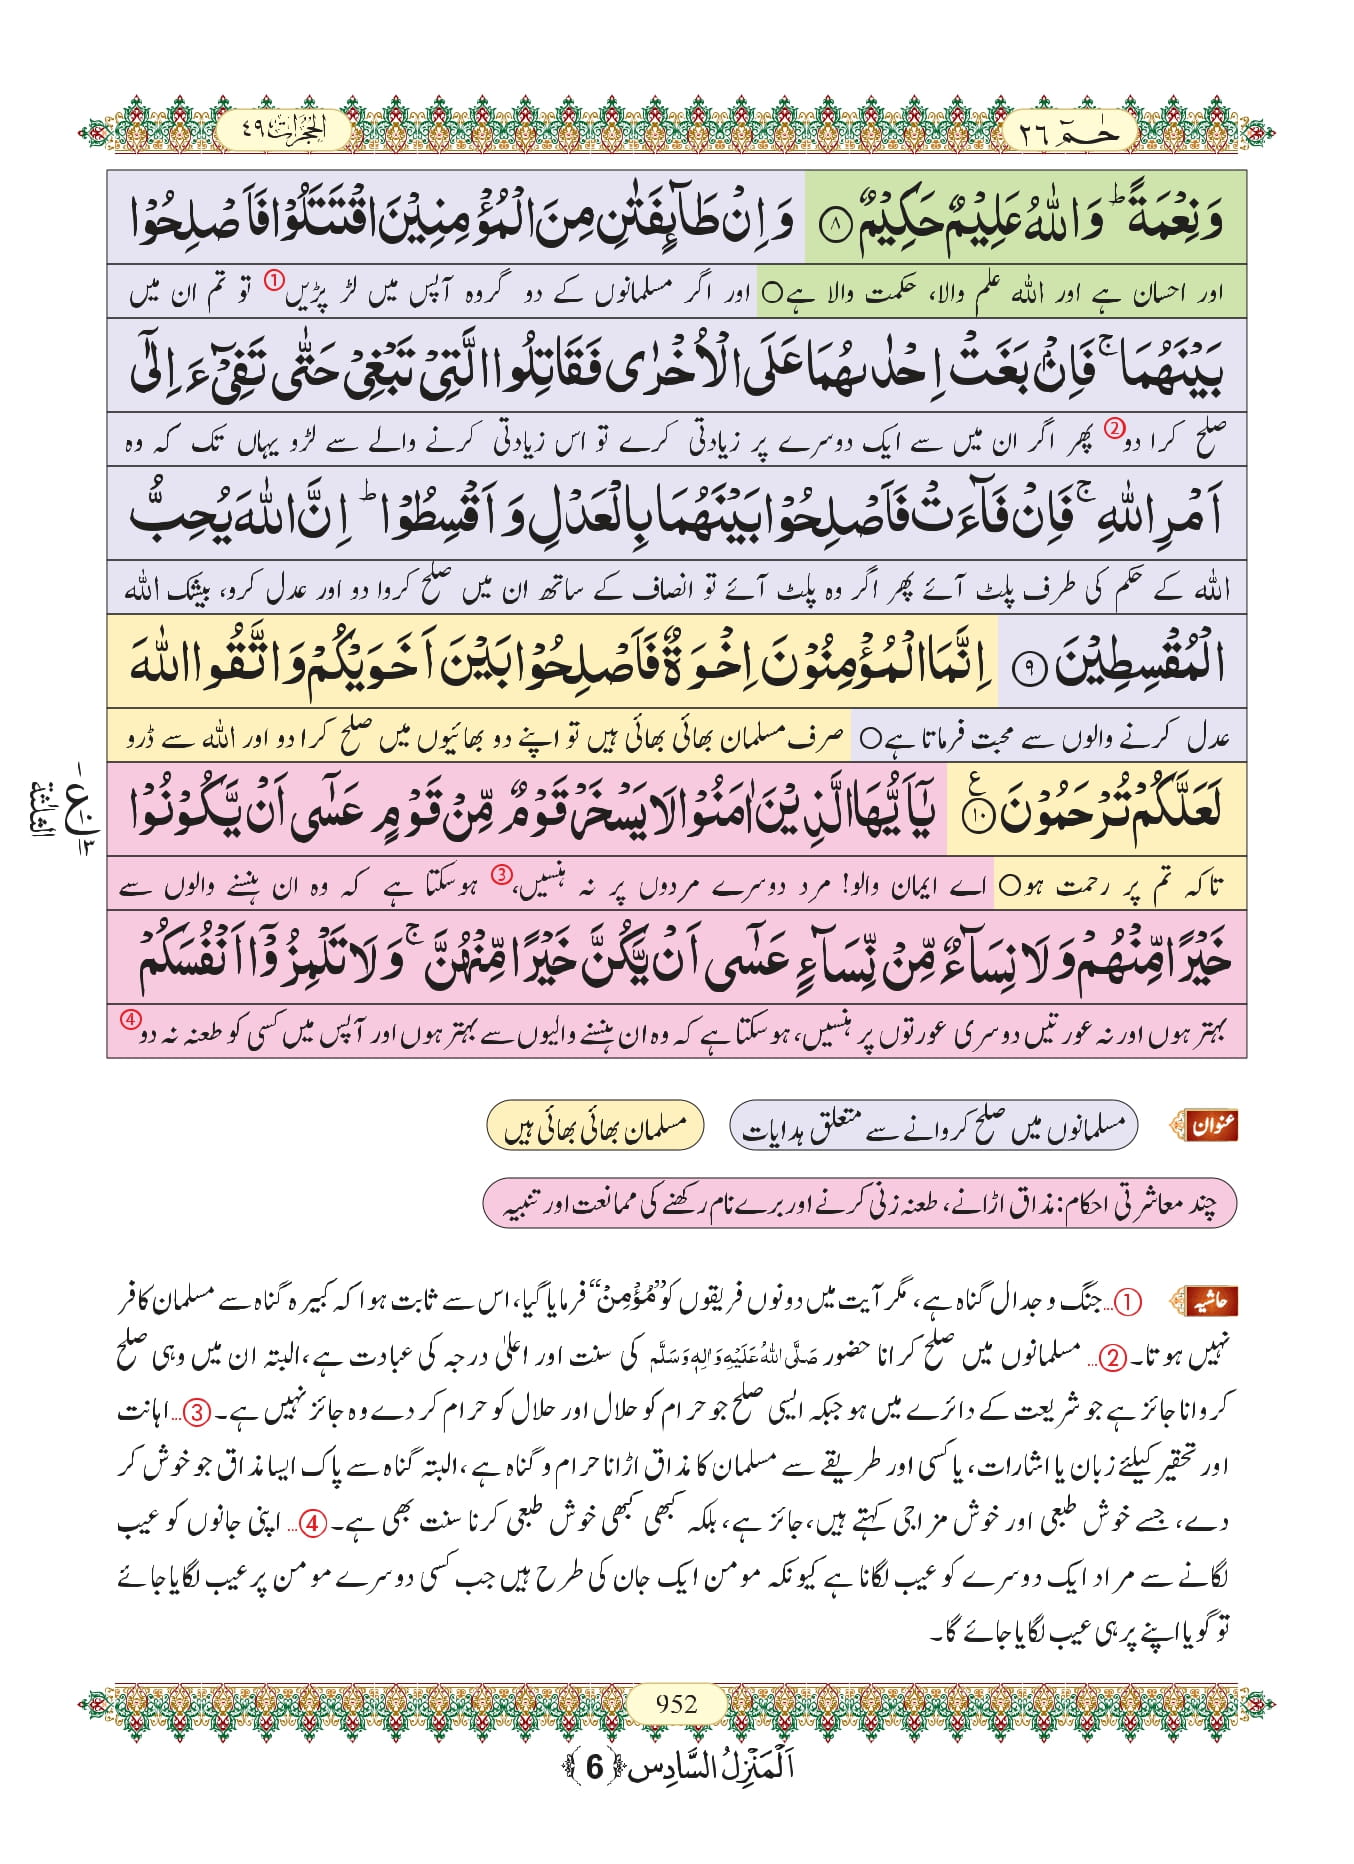 حٰمٓ ٢٦
الحجرات ٤٩
وَ نِعْمَةًؕ وَ اللّٰهُ عَلِیْمٌ حَكِیْمٌ ﴿۸﴾ وَ اِنْ طَآىٕفَتٰنِ مِنَ الْمُؤْمِنِیْنَ اقْتَتَلُوْا فَاَصْلِحُوْا
اور احسان ہے اور اللہ علم والا، حکمت والا ہے○ اور اگر مسلمانوں کے دو گروہ آپس میں لڑ پڑیں① تو تم ان میں
بَیْنَهُمَاۚ فَاِنْۢ بَغَتْ اِحْدٰىهُمَا عَلَى الْاُخْرٰى فَقَاتِلُوا الَّتِیْ تَبْغِیْ حَتّٰى تَفِیْٓءَ اِلٰۤى
صلح کرا دو② پھر اگر ان میں سے ایک دوسرے پر زیادتی کرے تو اس زیادتی کرنے والے سے لڑو یہاں تک کہ وہ
اَمْرِ اللّٰهِۚ فَاِنْ فَآءَتْ فَاَصْلِحُوْا بَیْنَهُمَا بِالْعَدْلِ وَ اَقْسِطُوْاؕ اِنَّ اللّٰهَ یُحِبُّ
اللہ کے حکم کی طرف پلٹ آئے پھر اگر وہ پلٹ آئے تو انصاف کے ساتھ ان میں صلح کروا دو اور عدل کرو، بیشک اللہ
الْمُقْسِطِیْنَ ﴿۹﴾ اِنَّمَا الْمُؤْمِنُوْنَ اِخْوَةٌ فَاَصْلِحُوْا بَیْنَ اَخَوَیْكُمْ وَ اتَّقُوا اللّٰهَ
عدل کرنے والوں سے محبت فرماتا ہے○ صرف مسلمان بھائی بھائی ہیں تو اپنے دو بھائیوں میں صلح کرا دو اور اللہ سے ڈرو
لَعَلَّكُمْ تُرْحَمُوْنَ ﴿۱۰﴾ع یٰۤاَیُّهَا الَّذِیْنَ اٰمَنُوْا لَا یَسْخَرْ قَوْمٌ مِّنْ قَوْمٍ عَسٰۤى اَنْ یَّكُوْنُوْا
ع ١ ١٠ ١٣ الثلٰثة
تاکہ تم پر رحمت ہو○ اے ایمان والو! مرد دوسرے مردوں پر نہ ہنسیں،③ ہوسکتا ہے کہ وہ ان ہنسنے والوں سے
خَیْرًا مِّنْهُمْ وَ لَا نِسَآءٌ مِّنْ نِّسَآءٍ عَسٰۤى اَنْ یَّكُنَّ خَیْرًا مِّنْهُنَّۚ وَ لَا تَلْمِزُوْۤا اَنْفُسَكُمْ
بہتر ہوں اور نہ عورتیں دوسری عورتوں پر ہنسیں، ہوسکتا ہے کہ وہ ان ہنسنے والیوں سے بہتر ہوں اور آپس میں کسی کو طعنہ نہ دو④
عنوان مسلمانوں میں صلح کروانے سے متعلق ہدایات مسلمان بھائی بھائی ہیں
چند معاشرتی احکام: مذاق اڑانے، طعنہ زنی کرنے اور برے نام رکھنے کی ممانعت اور تنبیہ
حاشیہ ①...جنگ و جدال گناہ ہے، مگر آیت میں دونوں فریقوں کو ”مُؤْمِنْ“ فرمایا گیا، اس سے ثابت ہوا کہ کبیرہ گناہ سے مسلمان کافر
نہیں ہوتا۔②... مسلمانوں میں صلح کرانا حضور صَلَّى اللهُ عَلَيْهِ وَاٰلِهٖ وَسَلَّم کی سنت اور اعلیٰ درجہ کی عبادت ہے، البتہ ان میں وہی صلح
کروانا جائز ہے جو شریعت کے دائرے میں ہو جبکہ ایسی صلح جو حرام کو حلال اور حلال کو حرام کر دے وہ جائز نہیں ہے۔③... اہانت
اور تحقیر کیلئے زبان یا اشارات، یا کسی اور طریقے سے مسلمان کا مذاق اڑانا حرام و گناہ ہے، البتہ گناہ سے پاک ایسا مذاق جو خوش کر
دے، جسے خوش طبعی اور خوش مزاجی کہتے ہیں، جائز ہے، بلکہ کبھی کبھی خوش طبعی کرنا سنت بھی ہے۔④... اپنی جانوں کو عیب
لگانے سے مراد ایک دوسرے کو عیب لگانا ہے کیونکہ مومن ایک جان کی طرح ہیں جب کسی دوسرے مومن پر عیب لگایا جائے
تو گویا اپنے پر ہی عیب لگایا جائے گا۔
952
اَلْمَنْزِلُ السَّادِس ﴿6﴾